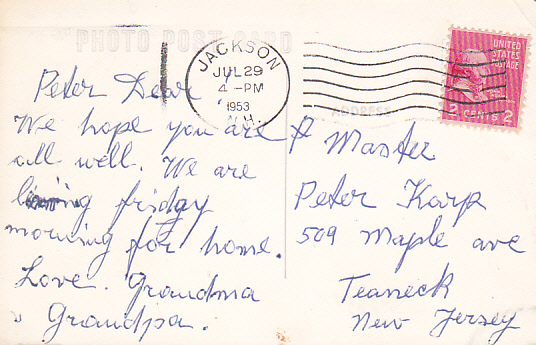 PHOTO POST CARD
JACKSON
JUL 29
4 - PM
1953
N.H.
UNITED
STATES
POSTAGE
2 CENTS 2
ADDRESS
Peter Dear
We hope you are
all well. We are
friday
morning for home.
Love. Grandma
Grandpa.
Master
Peter Karp
509 Maple ave
Teaneck
New Jersey